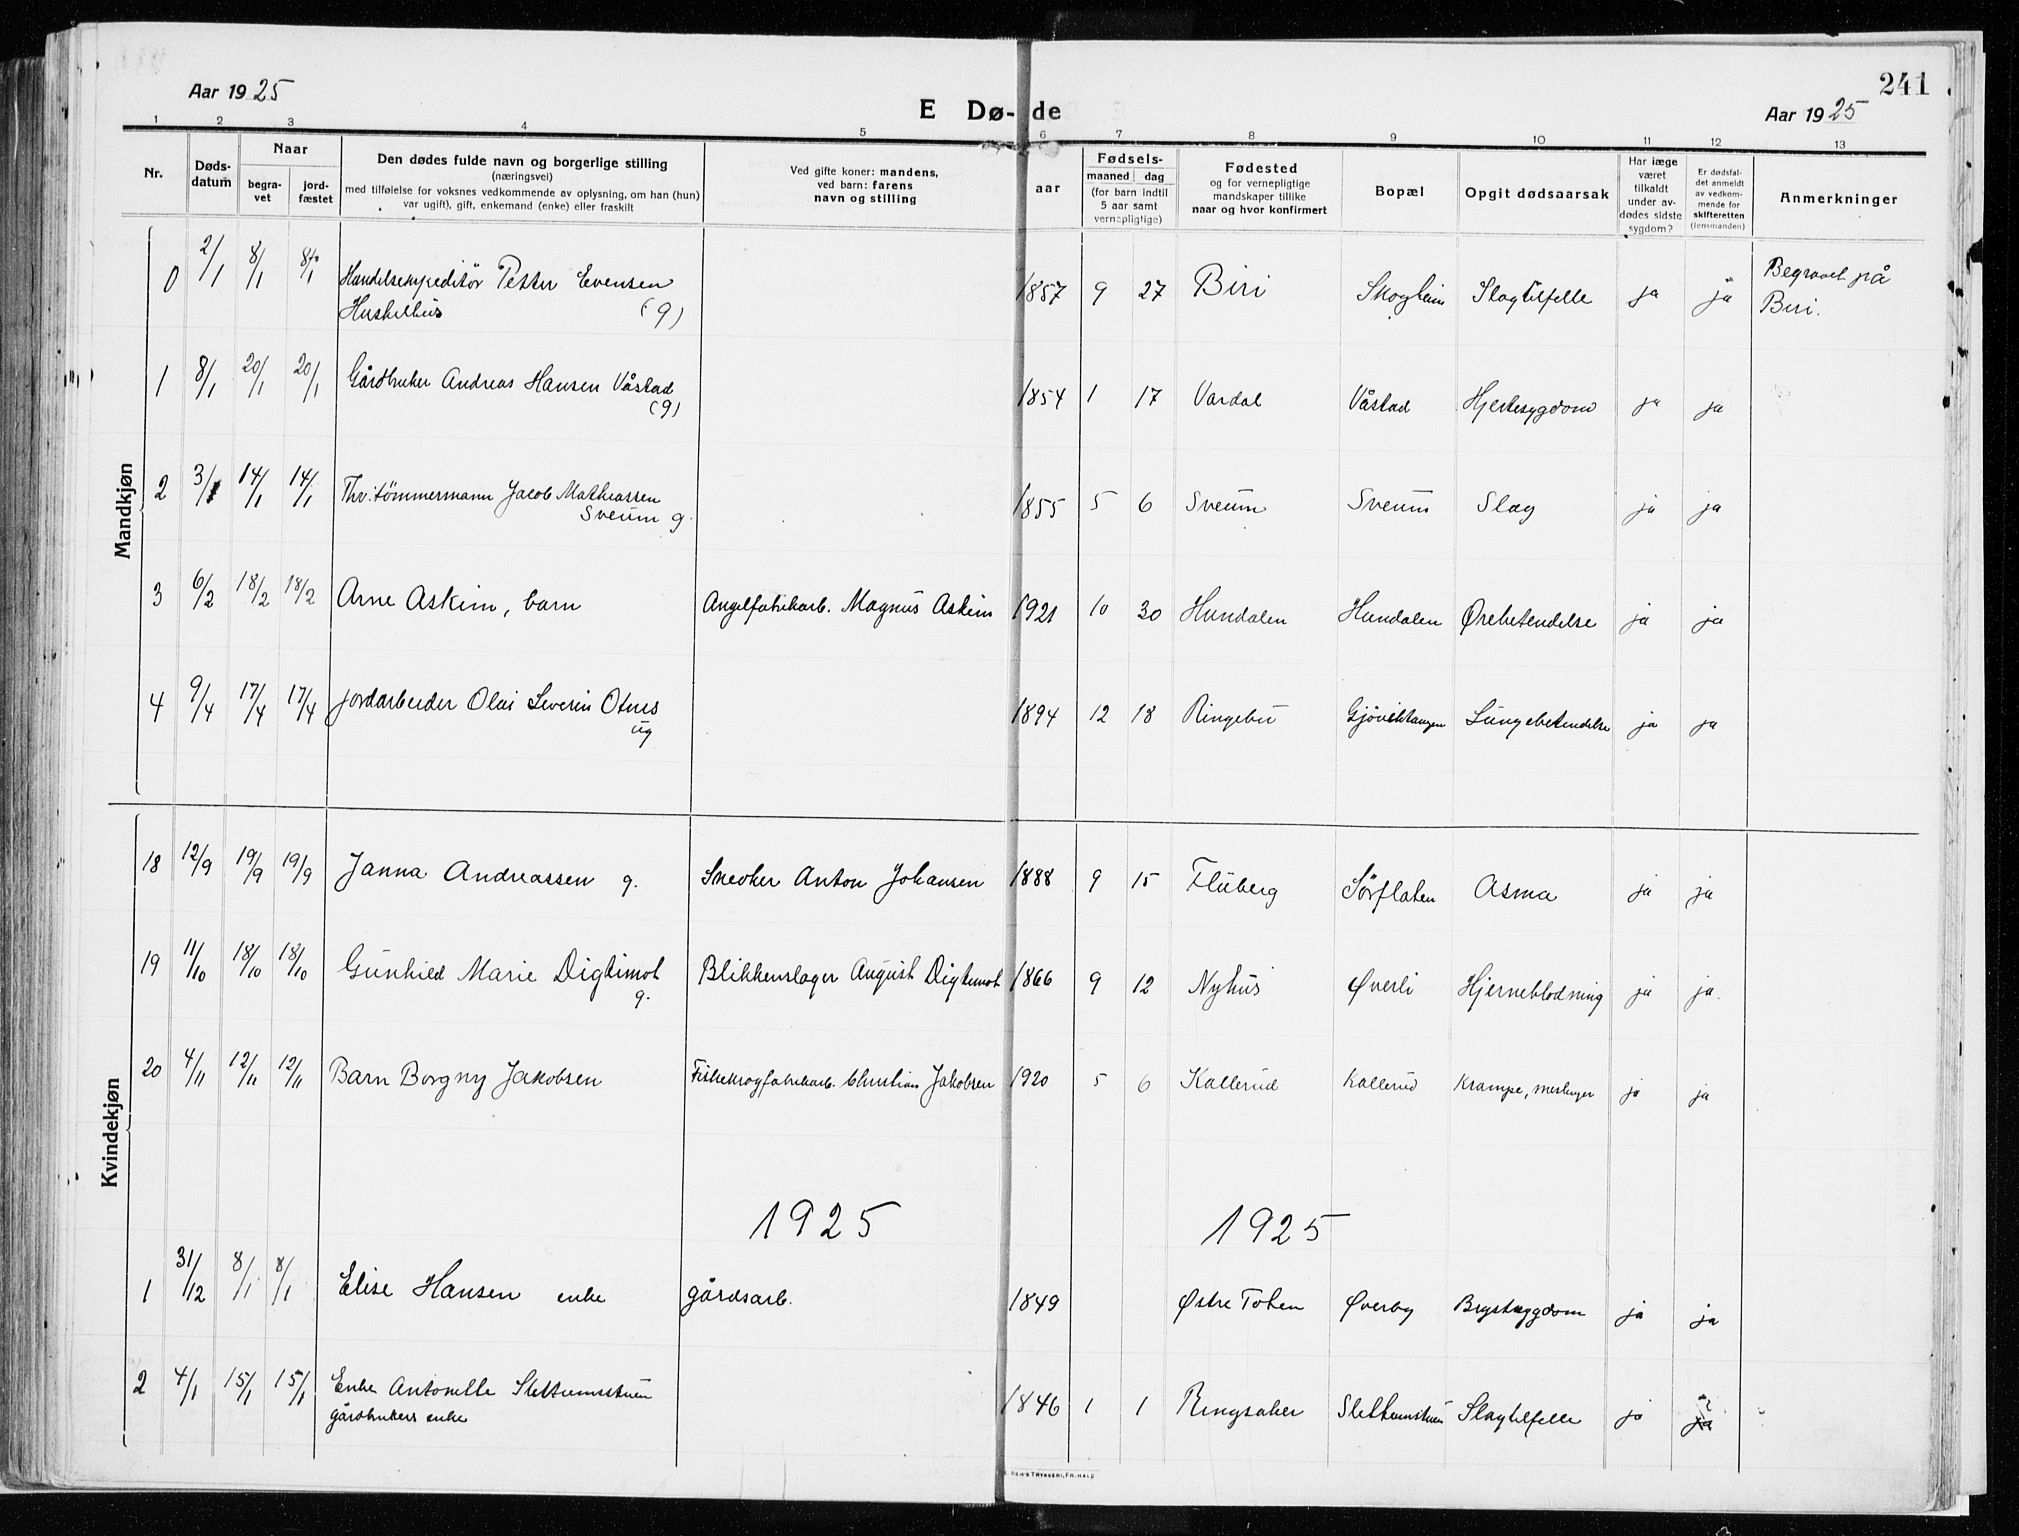 241
Aar 1925
E Dø-de
Aar 1925
1 2 3 4 5 6 7 8 9 10 11 12 13
Nr.
Døds-
datum
Naar
begra-
vet
jord-
fæstet
Den dødes fulde navn og borgerlige stilling
(næringsvei)
med tilføielse for voksnes vedkommende av oplysning, om han (hun)
var ugift), gift, enkemand (enke) eller fraskilt
Ved gifte koner: mandens,
ved barn: farens
navn og stilling
aar
Fødsels-
maaned dag
(for barn indtil
5 aar samt
vernepligtige)
Fødested
og for vernepligtige
mandskaper tillike
naar og hvor konfirmert
Bopæl
Opgit dødsaarsak
Har læge
været
tilkaldt
under av-
dødes sidste
sygdom?
Er dødsfal-
det anmeldt
av vedkom-
mende for
skifteretten
(lensmanden)
Anmerkninger
Mandkjøn
0 2/1 8/1 8/1 Handelsexpeditør Petter Evensen 1857 9 27 Biri Skogheim Slagtilfelle ja ja Begravet på
Huskelhus (g) Biri.
1 8/1 20/1 20/1 Gårdbruker Andreas Hansen Våstad 1854 1 17 Vardal Våstad Hjertesygdom ja ja
(g)
2 3/1 14/1 14/1 Thv. tømmermann Jacob Mathiassen 1855 5 6 Sveum Sveum Slag ja ja
Sveum g.
3 6/2 18/2 18/2 Arne Askim, barn Angelfabrikarb. Magnus Askim 1921 10 30 Hundalen Hundalen Ørebetendelse ja ja
4 9/4 17/4 17/4 Jordarbeider Olai Severin Otnes 1894 12 18 Ringebu Gjøviktangen Lungebetendelse ja ja
ug
Kvindekjøn
18 12/9 19/9 19/9 Janna Andreassen g. Snedker Anton Johansen 1888 9 15 Fluberg Sørflaten Asma ja ja
19 11/10 18/10 18/10 Gunhild Marie Digtimot Blikkenslager August Digtimot 1866 9 12 Nyhus Øverli Hjerneblødning ja ja.
g.
20 4/11 12/11 12/11 Barn Borgny Jakobsen Fiskekrogfabrikarb. Christian Jakobsen 1920 5 6 Kallerud Kallerud Krampe, meslinger ja ja
1925 1925
1 31/12 8/1 8/1 Elise Hansen enke gårdsarb. 1849 Østre Toten Øverby Brystsygdom ja ja
2 4/1 15/1 15/1 Enke Antonette Slettumsstuen 1846 1 1 Ringsaker Slettumstuen Slagtilfelle ja ja
gårdbrukers enke